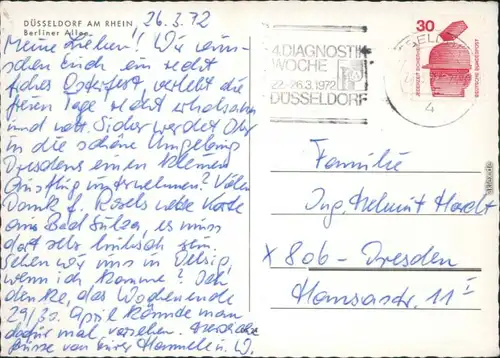 DÜSSELDORF AM RHEIN
Berliner Allee
26.3.72
Meine Lieben! Wir wün-
schen Euch ein recht
frohes Osterfest, verlebt die
freien Tage recht erholsam
und nett. Sicher werdet Ihr
in die schöne Umgebung
Dresdens einen kleinen
Ausflug unternehmen? Vielen
Dank f. Rosels nette Karte
aus Bad Sulza, es muss
dort sehr hübsch sein.
Sehen wir uns in
wenn ich komme? Ich
denke, das Wochenende
29/30. April könnte man
dafür mal vorsehen. Herzliche
Grüsse von Eurer Hannele u. W.
4. DIAGNOSTIK
WOCHE
22.-26.3.1972
DÜSSELDORF
4
30
JEDERZEIT SICHERHEIT
DEUTSCHE BUNDESPOST
Familie
Ing. Helmut
X 806 - Dresden
Hansastr. 11 I